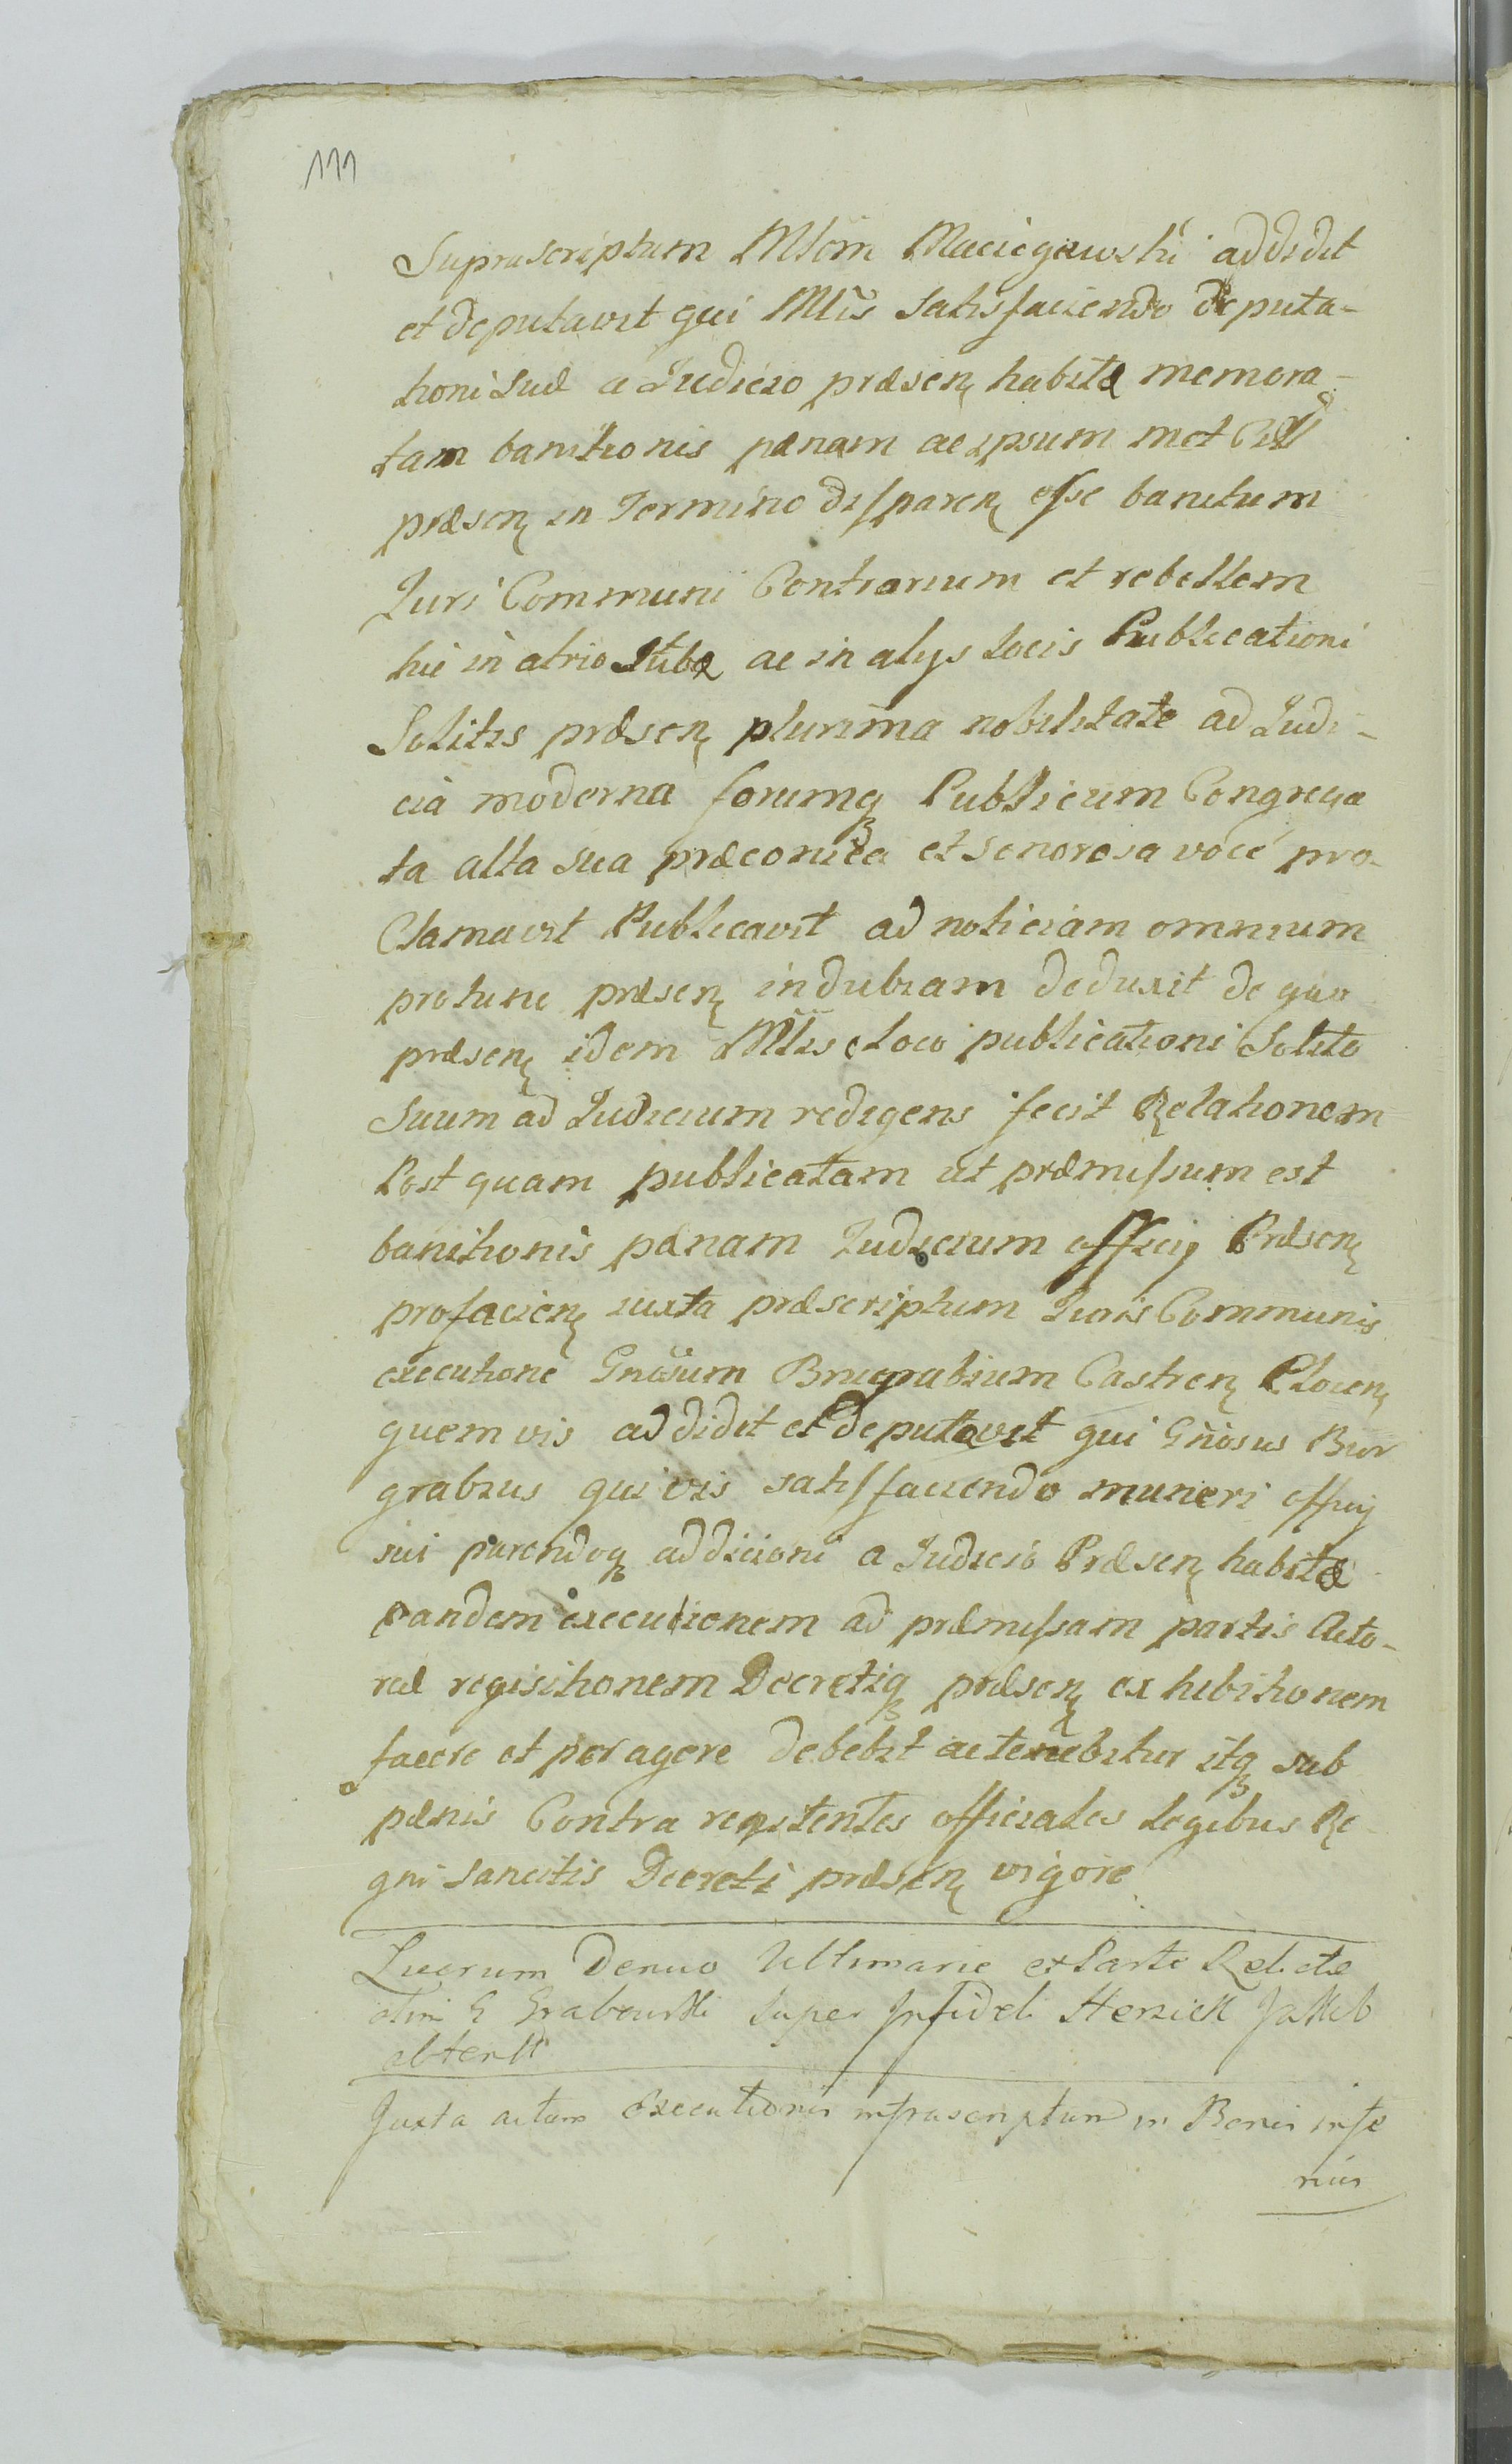 111
Suprascriptum Mlem Maciejewski addidit
et deputavit qui Mlis satisfaciendo deputa-
tioni suæ a Judicio præsen habitæ memora-
tam banitionis pænam ac ipsum met Citt
præsen in Termino disparen esse banitum
Juri Communi Contrarium et rebellem
hic in atrio Stubæ ac in alys locis Publicationi
Solitis præsen plurima nobilitate ad Judi-
cia moderna forumq Publicum Congrega
ta alta sua præconica et sonorosa voce pro-
Clamavit Publicavit ad noticiam omnium
protunc præsen indubiam deduxit de quo
præsen idem Mlis e Loco publicationi Solito
Suum ad Judicium redigens fecit Relationem
Post quam publicatam ut præmissum est
banitionis pænam Judicium officij Præsen
pro facien iuxta præscriptum Juris Communis
executione Gnosum Burgrabium Castren Plocen
quem vis addidit et deputavit qui Gnosus Bur
grabius qui vis satisfaciendo muneri officij
sui parendoq addicioni a Judicio Præsen habitæ
eandem executionem ad præmissam partis Acto-
reæ reqisitionem Decretiq præsen exhibitionem
facere et peragere debebit ac tenebitur itq sub
pænis Contra renitentes officiales legibus Re-
gni Sancitis Decreti præsen vigore
Lucrum Denuo Ultimarie ex Parte Relictæ
olim G Grabowski super Infideli Herszek Jakub
obtent
Juxta actum Executionis infrascriptum in Bonis infe
rius